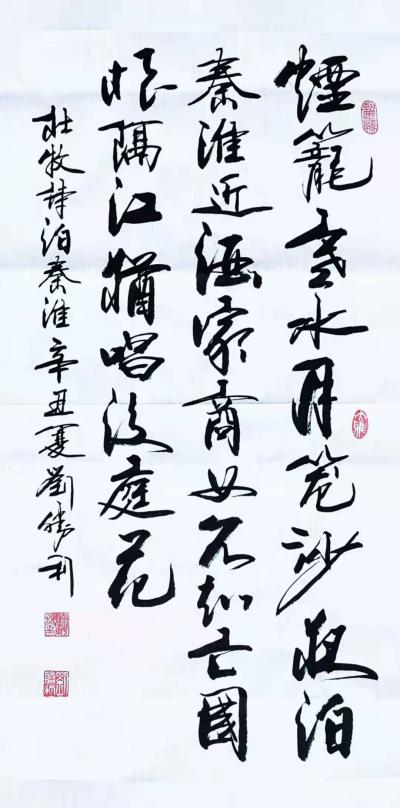 煙籠寒水月笼沙夜泊
秦淮近酒家商女不知亡國
恨隔江猶唱後庭花
杜牧詩泊秦淮辛丑夏劉勝利